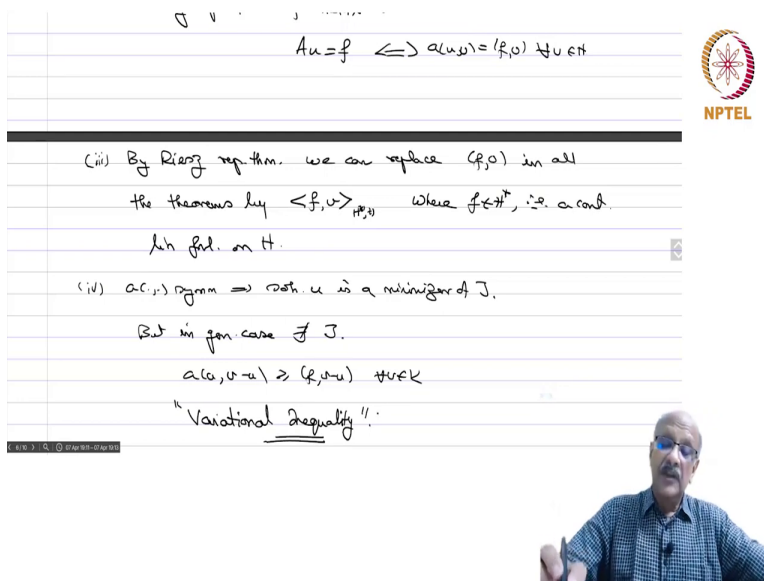 Au = f ⟺ a(u,v) = (f,v) ∀ v ∈ H
NPTEL
(iii) By Riesz rep. thm. we can replace (f,v) in all
the theorems by <f,v> where f ∈ H*, i.e. a cont.
lin fnl. on H.
(iv) a(.,.) symm ⟹ soln. u is a minimizer of J.
But in gen. case ∄ J.
a(u, v-u) ≥ (f, v-u) ∀ v ∈ K
"Variational Inequality".
6/10
07 Apr 19:11 - 07 Apr 19:13